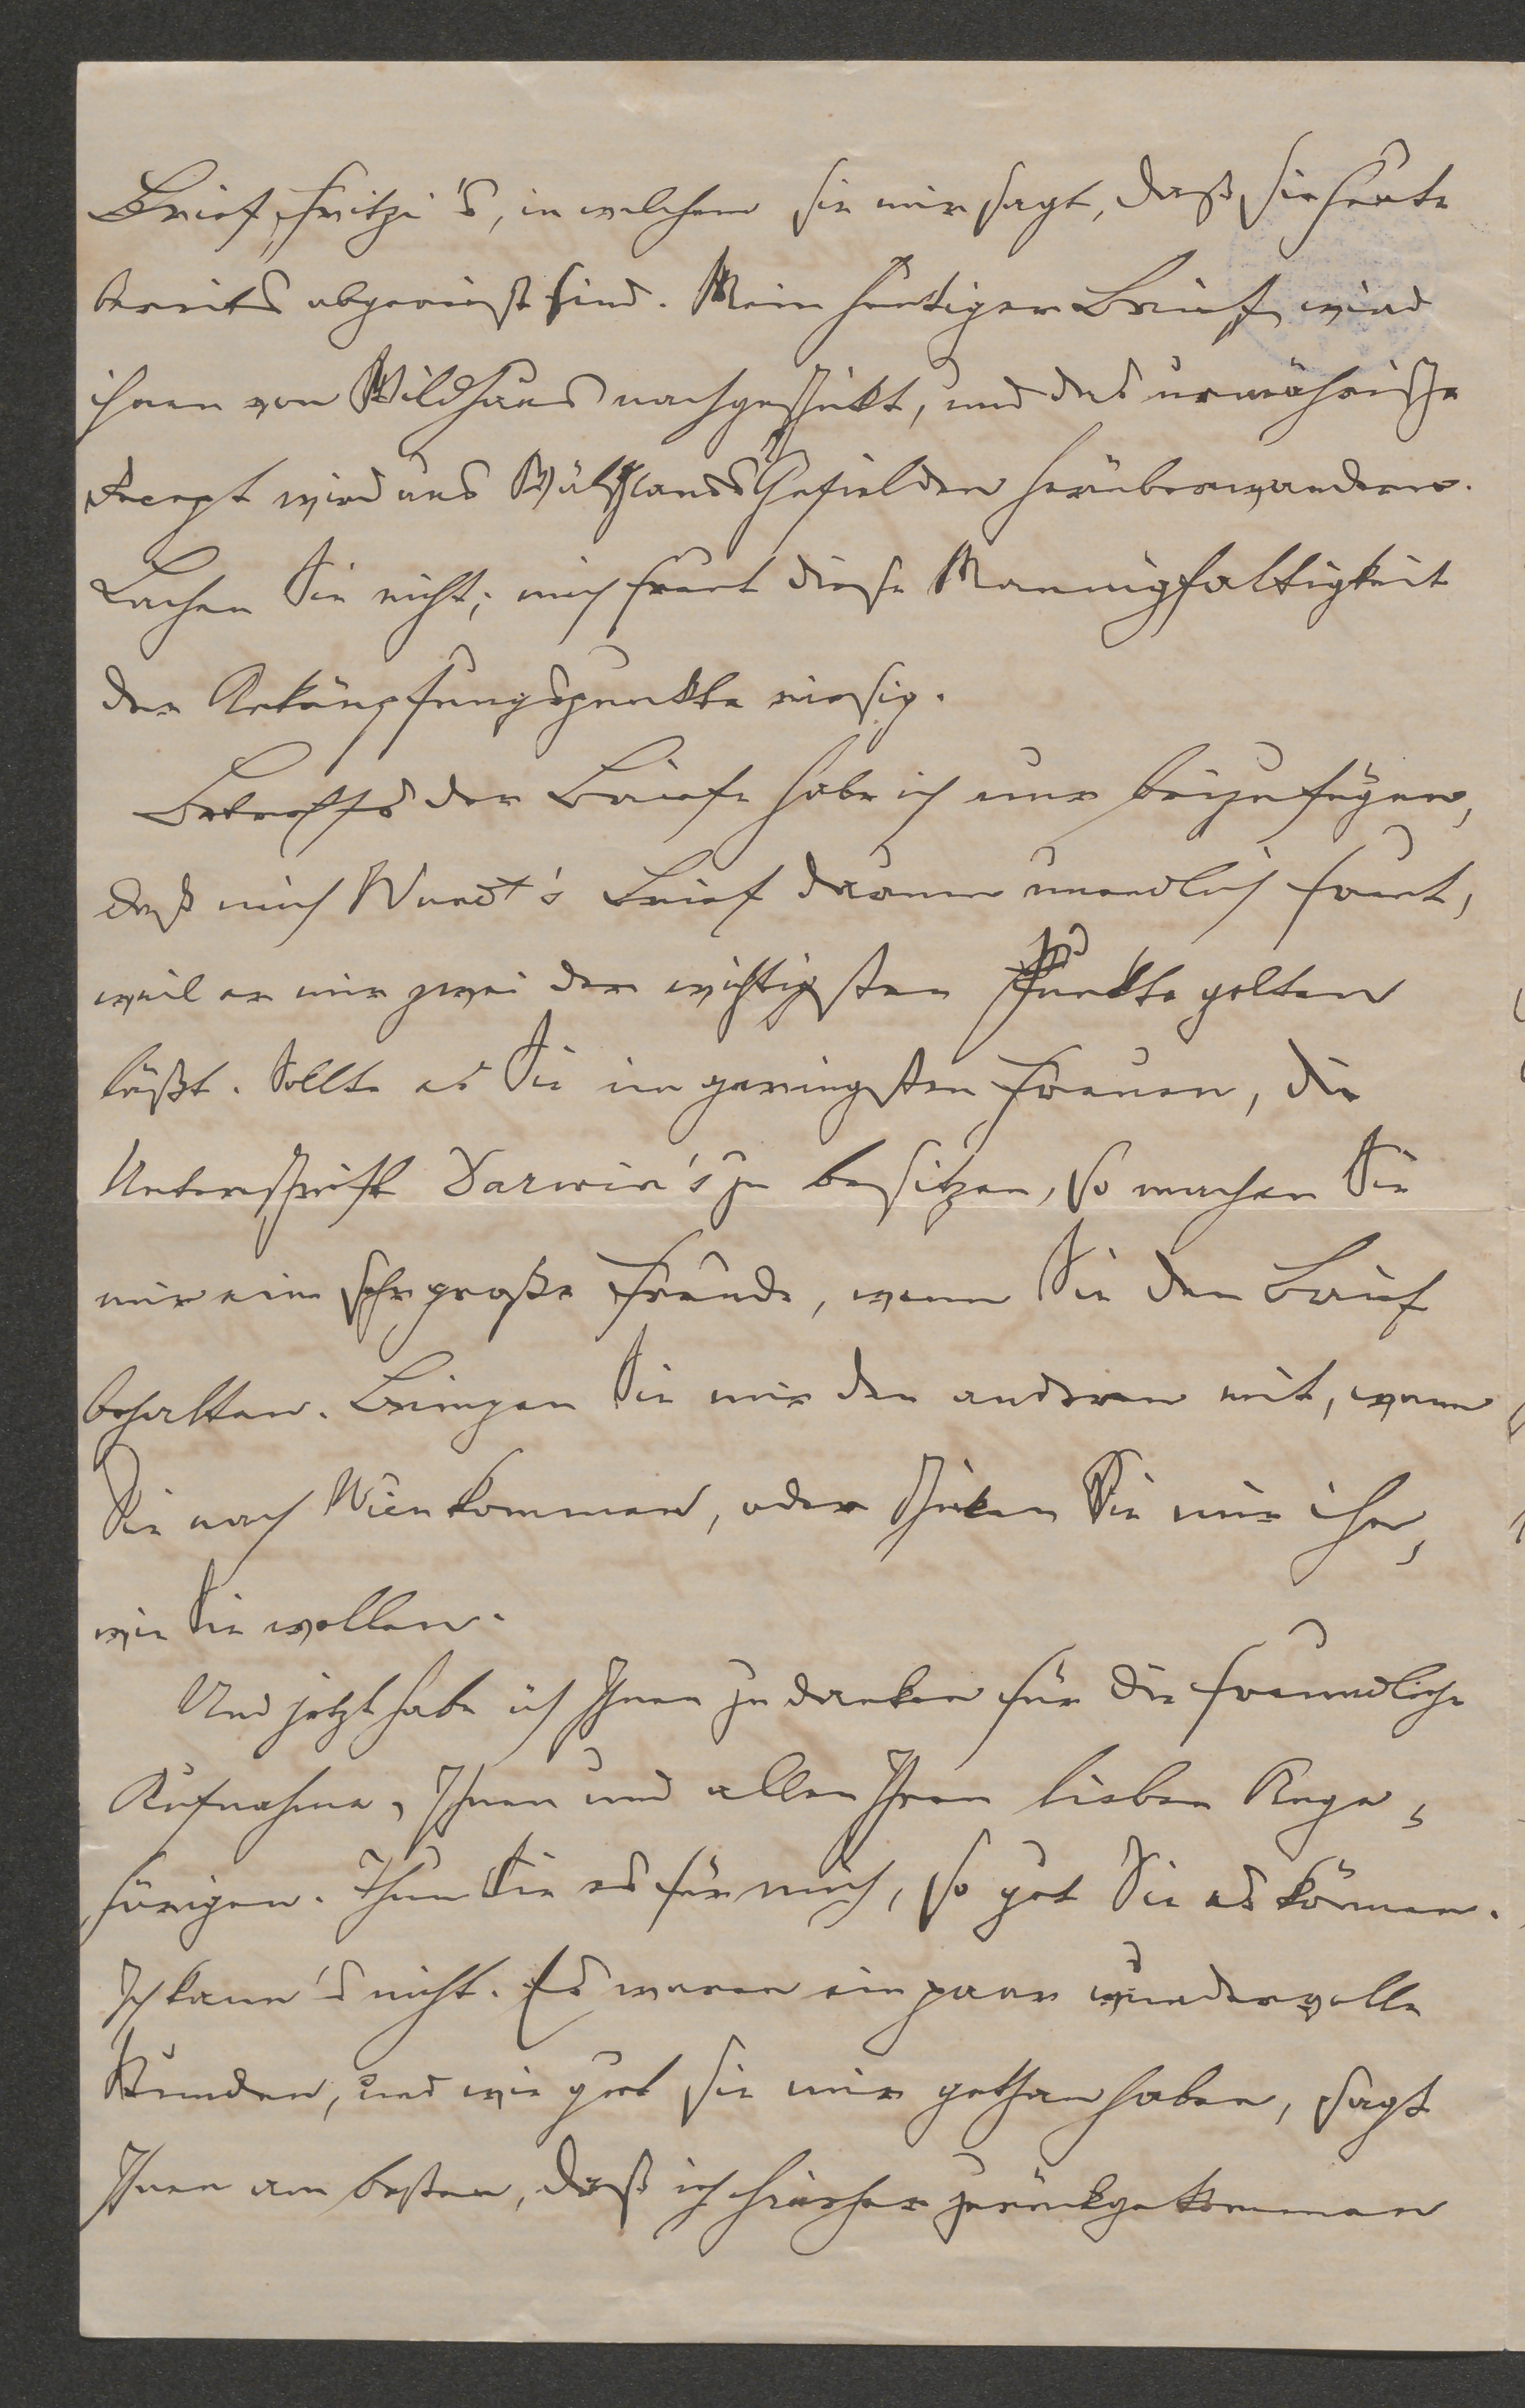 Brief Fritzi's, in welchem sie mir sagt, daß sie heute
bereits abgereist sind. Mein heutiger Brief wird
ihnen von Wildhaus nachgeschickt, und das urmährische
Recept wird aus Wälschlands Gefielden herüberwandern.
Lachen Sie nicht; mich freut diese Mannigfaltigkeit
der Anknüpfungspunkte riesig.
Betreffs der Briefe habe ich nur beizufügen,
daß mich Wundt's Brief darum unendlich freut,
weil er mir zwei der wichtigsten Punkte gelten
läßt. Sollte es Sie im geringsten freuen, die
Unterschrift Darwin's zu besitzen, so machen Sie
mir eine sehr große Freude, wenn Sie den Brief
behalten. Bringen Sie mir den anderen mit, wenn
Sie nach Wien kommen, oder schicken Sie mir ihn,
wie Sie wollen.
Und jetzt habe ich Ihnen zu danken für die freundliche
Aufnahme, Ihnen und allen Ihren lieben Ange-
hörigen. Thun Sie es für mich, so gut Sie es können.
Ich kann's nicht. Es waren ein paar wundervolle
Stunden, und wie gut sie mir gethan haben, sagt
Ihnen am besten, daß ich hierher zurückgekommen